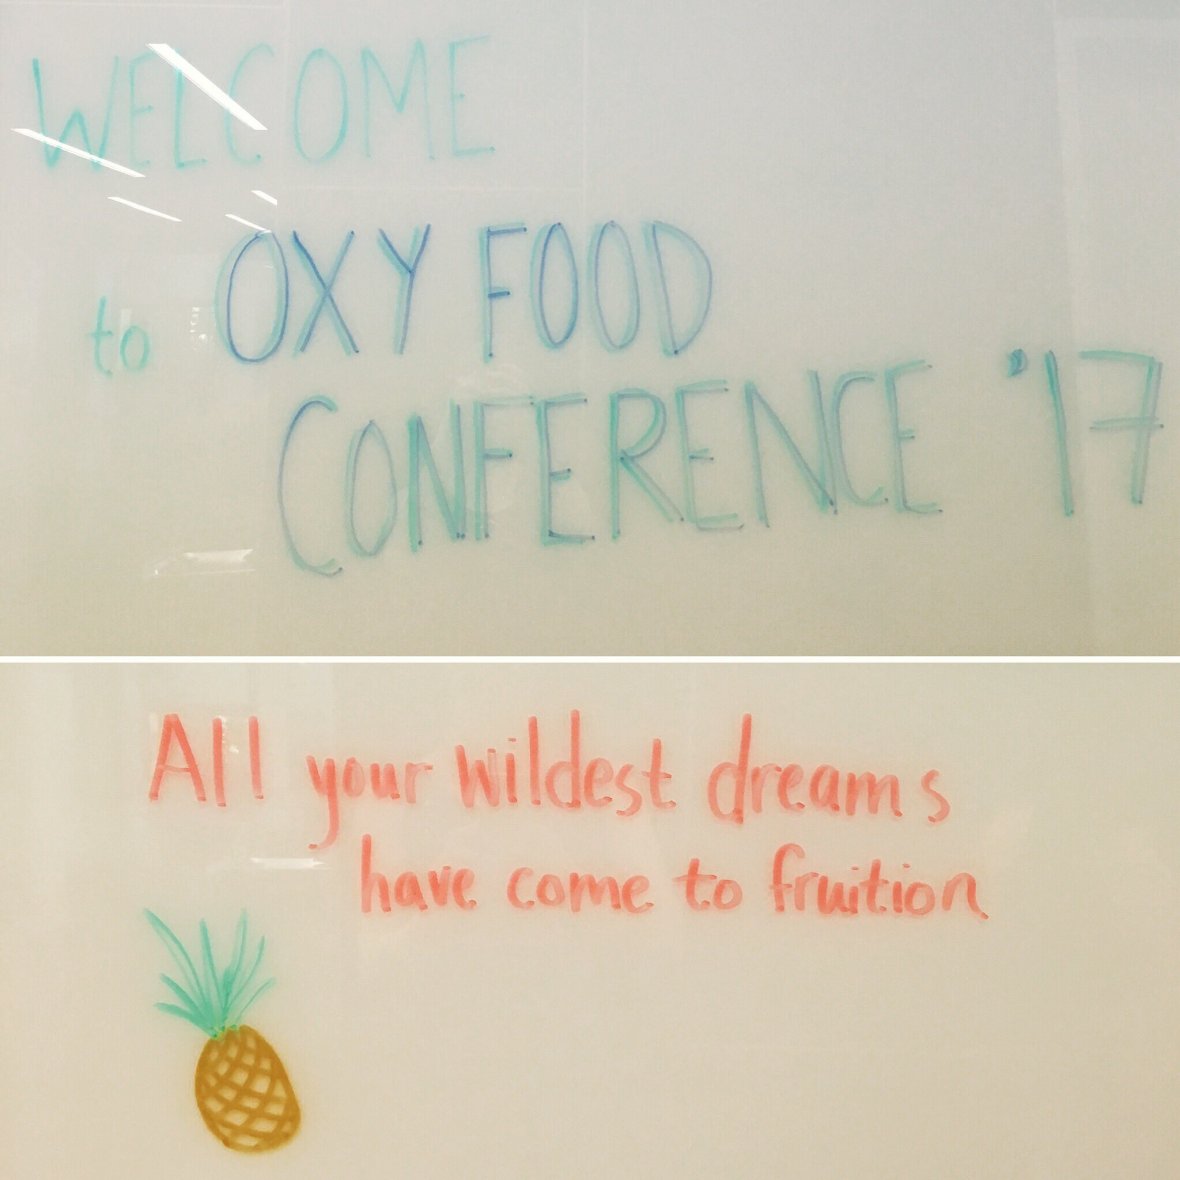 WELCOME
to OXY FOOD
CONFERENCE '17
All your wildest dreams
have come to fruition